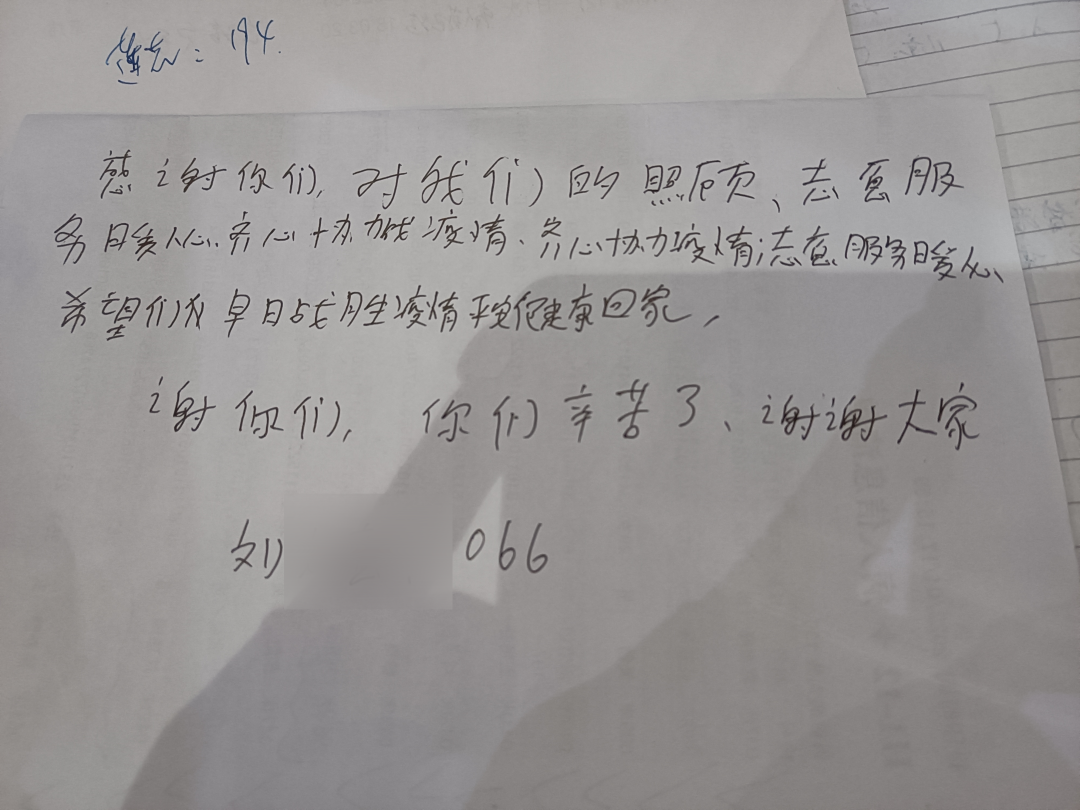 194.
感谢你们,对我们的照顾、志愿服
务暖人心.齐心协力战疫情、齐心协力疫情;志愿服务暖人心、
希望们从早日战胜疫情平安健康回家,
谢你们,你们辛苦了、谢谢大家
刘 066